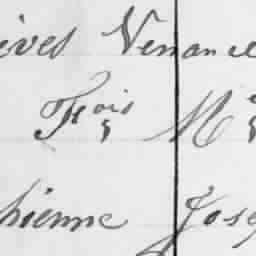 ives Venance
Frois M
hienne Jose